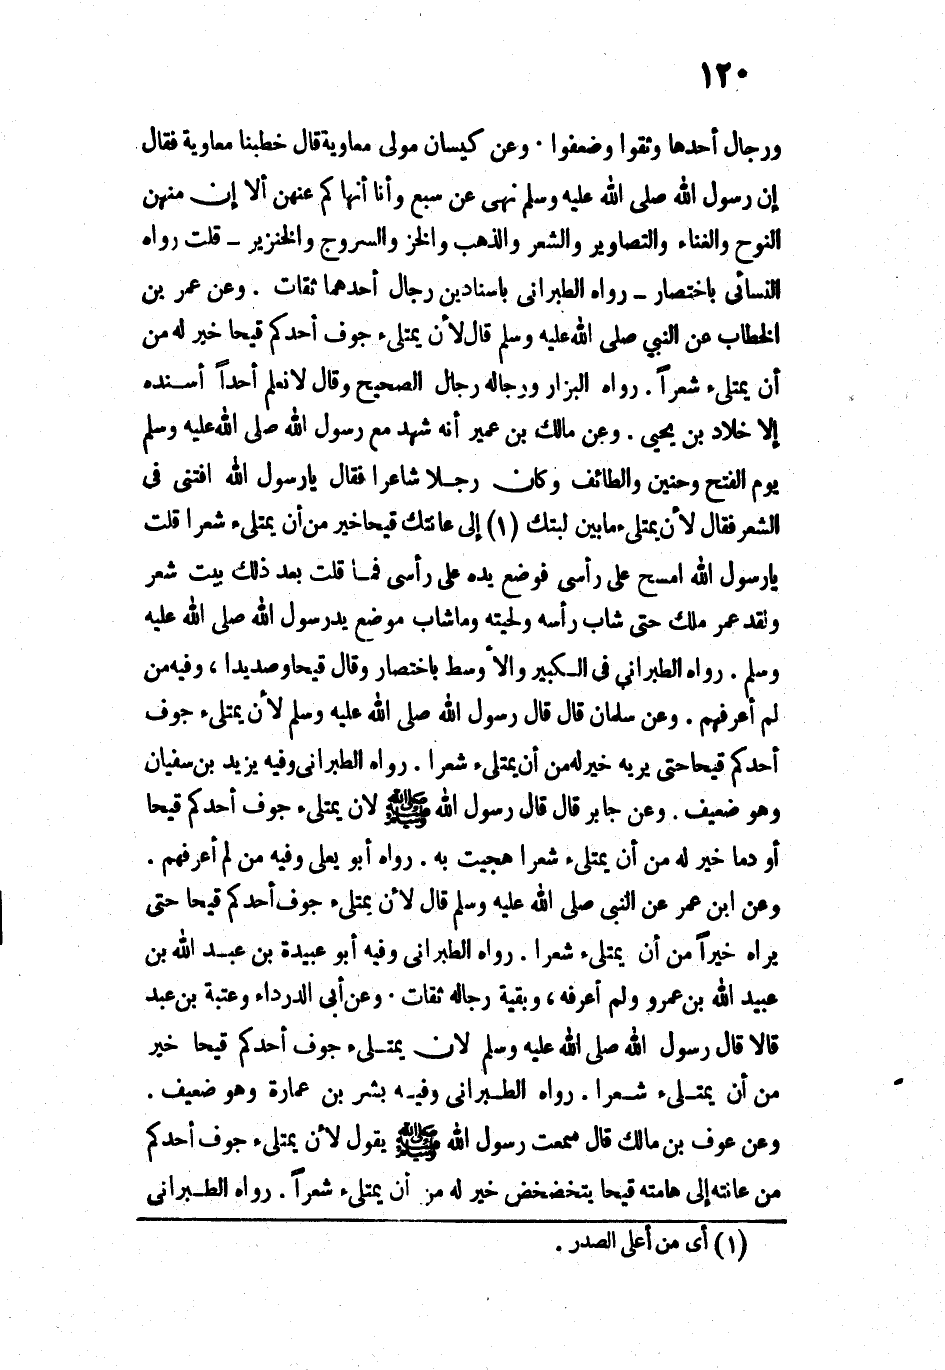 ١٢٠
ورجال أحدها وثقوا وضعفوا . وعن كيسان مولى معاوية قال خطبنا معاوية فقال
إن رسول الله صلى الله عليه وسلم نهى عن سبع وأنا أنها كم عنهن ألا إن منهن
النوح والغناء والتصاوير والشعر والذهب والخز والسروج والخنزير ـ قلت رواه
النسائى باختصار ـ رواه الطبرانى باسنادين رجال أحدهما ثقات . وعن عمر بن
الخطاب عن النبي صلى الله عليه وسلم قال لأن يمتلىء جوف أحدكم قيحا خير له من
أن يمتلىء شعراً . رواه البزار ورجاله رجال الصحيح وقال لا نعلم أحداً أسنده
إلا خلاد بن يحيى . وعن مالك بن عمير أنه شهد مع رسول الله صلى الله عليه وسلم
يوم الفتح وحنين والطائف وكان رجلا شاعرا فقال يارسول الله افتنى فى
الشعر فقال لأن يمتلىء مابين لبتك (١) إلى عانتك قيحا خير من أن يمتلىء شعرا قلت
يارسول الله امسح على رأسى فوضع يده على رأسى فما قلت بعد ذلك بيت شعر
ولقد عمر ملك حتى شاب رأسه ولحيته وماشاب موضع يد رسول الله صلى الله عليه
وسلم . رواه الطبراني فى الكبير والأوسط باختصار وقال قيحا وصديدا ، وفيه من
لم أعرفهم . وعن سلمان قال قال رسول الله صلى الله عليه وسلم لأن يمتلىء جوف
أحدكم قيحا حتى يريه خير له من أن يمتلىء شعرا . رواه الطبرانى وفيه يزيد بن سفيان
وهو ضعيف . وعن جابر قال قال رسول الله ﷺ لان يمتلىء جوف أحدكم قيحا
أو دما خير له من أن يمتلىء شعرا هجيت به . رواه أبو يعلى وفيه من لم أعرفهم .
وعن ابن عمر عن النبى صلى الله عليه وسلم قال لأن يمتلىء جوف أحدكم قيحا حتى
يراه خيراً من أن يمتلىء شعرا . رواه الطبرانى وفيه أبو عبيدة بن عبد الله بن
عبيد الله بن عمرو ولم أعرفه ، وبقية رجاله ثقات . وعن أبي الدرداء وعتبة بن عبد
قالا قال رسول الله صلى الله عليه وسلم لان يمتلىء جوف أحدكم قيحا خير
من أن يمتلىء شعرا . رواه الطبرانى وفيه بشر بن عمارة وهو ضعيف .
وعن عوف بن مالك قال سمعت رسول الله ﷺ يقول لأن يمتلىء جوف أحدكم
من عانته إلى هامته قيحا يتخضخض خير له من أن يمتلىء شعراً . رواه الطبرانى
(١) أى من أعلى الصدر .